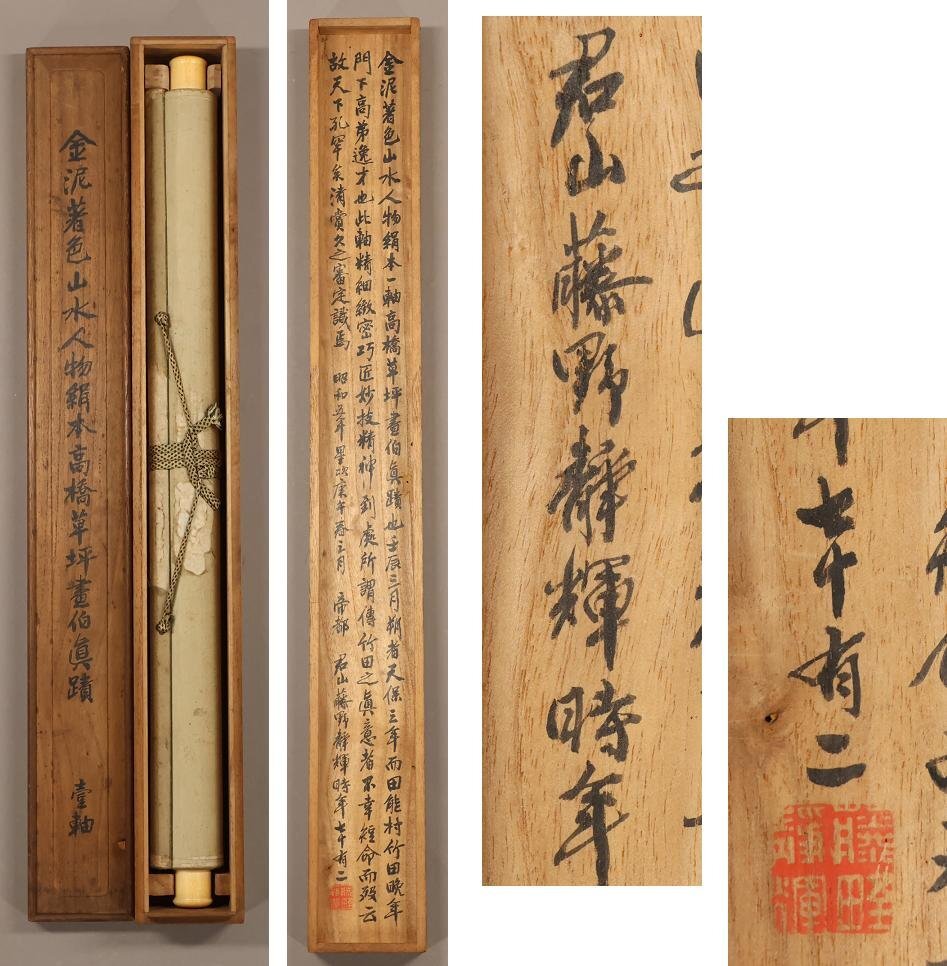 金泥著色山水人物絹本高橋草坪畫伯眞蹟
壹軸
金泥著色山水人物絹本一軸高橋草坪畫伯眞蹟也壬辰三月朔者天保三年而田能村竹田晩年
門下高弟逸才也此軸精細緻密巧匠妙技精神到處所謂傳竹田之眞意者不幸短命而歿云
故天下孔罕矣清賞久之審定識焉 昭和五年星次庚午春三月 帝都 君山藤野靜輝時年七十有二
君山藤野靜輝時年
七十有二
藤野
靜輝